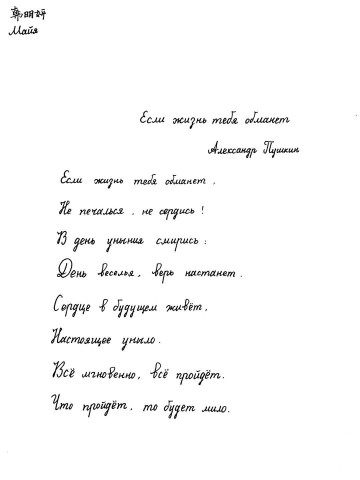 郭明妤
Майя
Если жизнь тебя обманет
Александр Пушкин
Если жизнь тебя обманет,
Не печалься, не сердись!
В день уныния смирись:
День веселья, верь настанет.
Сердце в будущем живёт,
Настоящее уныло.
Всё мгновенно, всё пройдёт.
Что пройдёт, то будет мило.